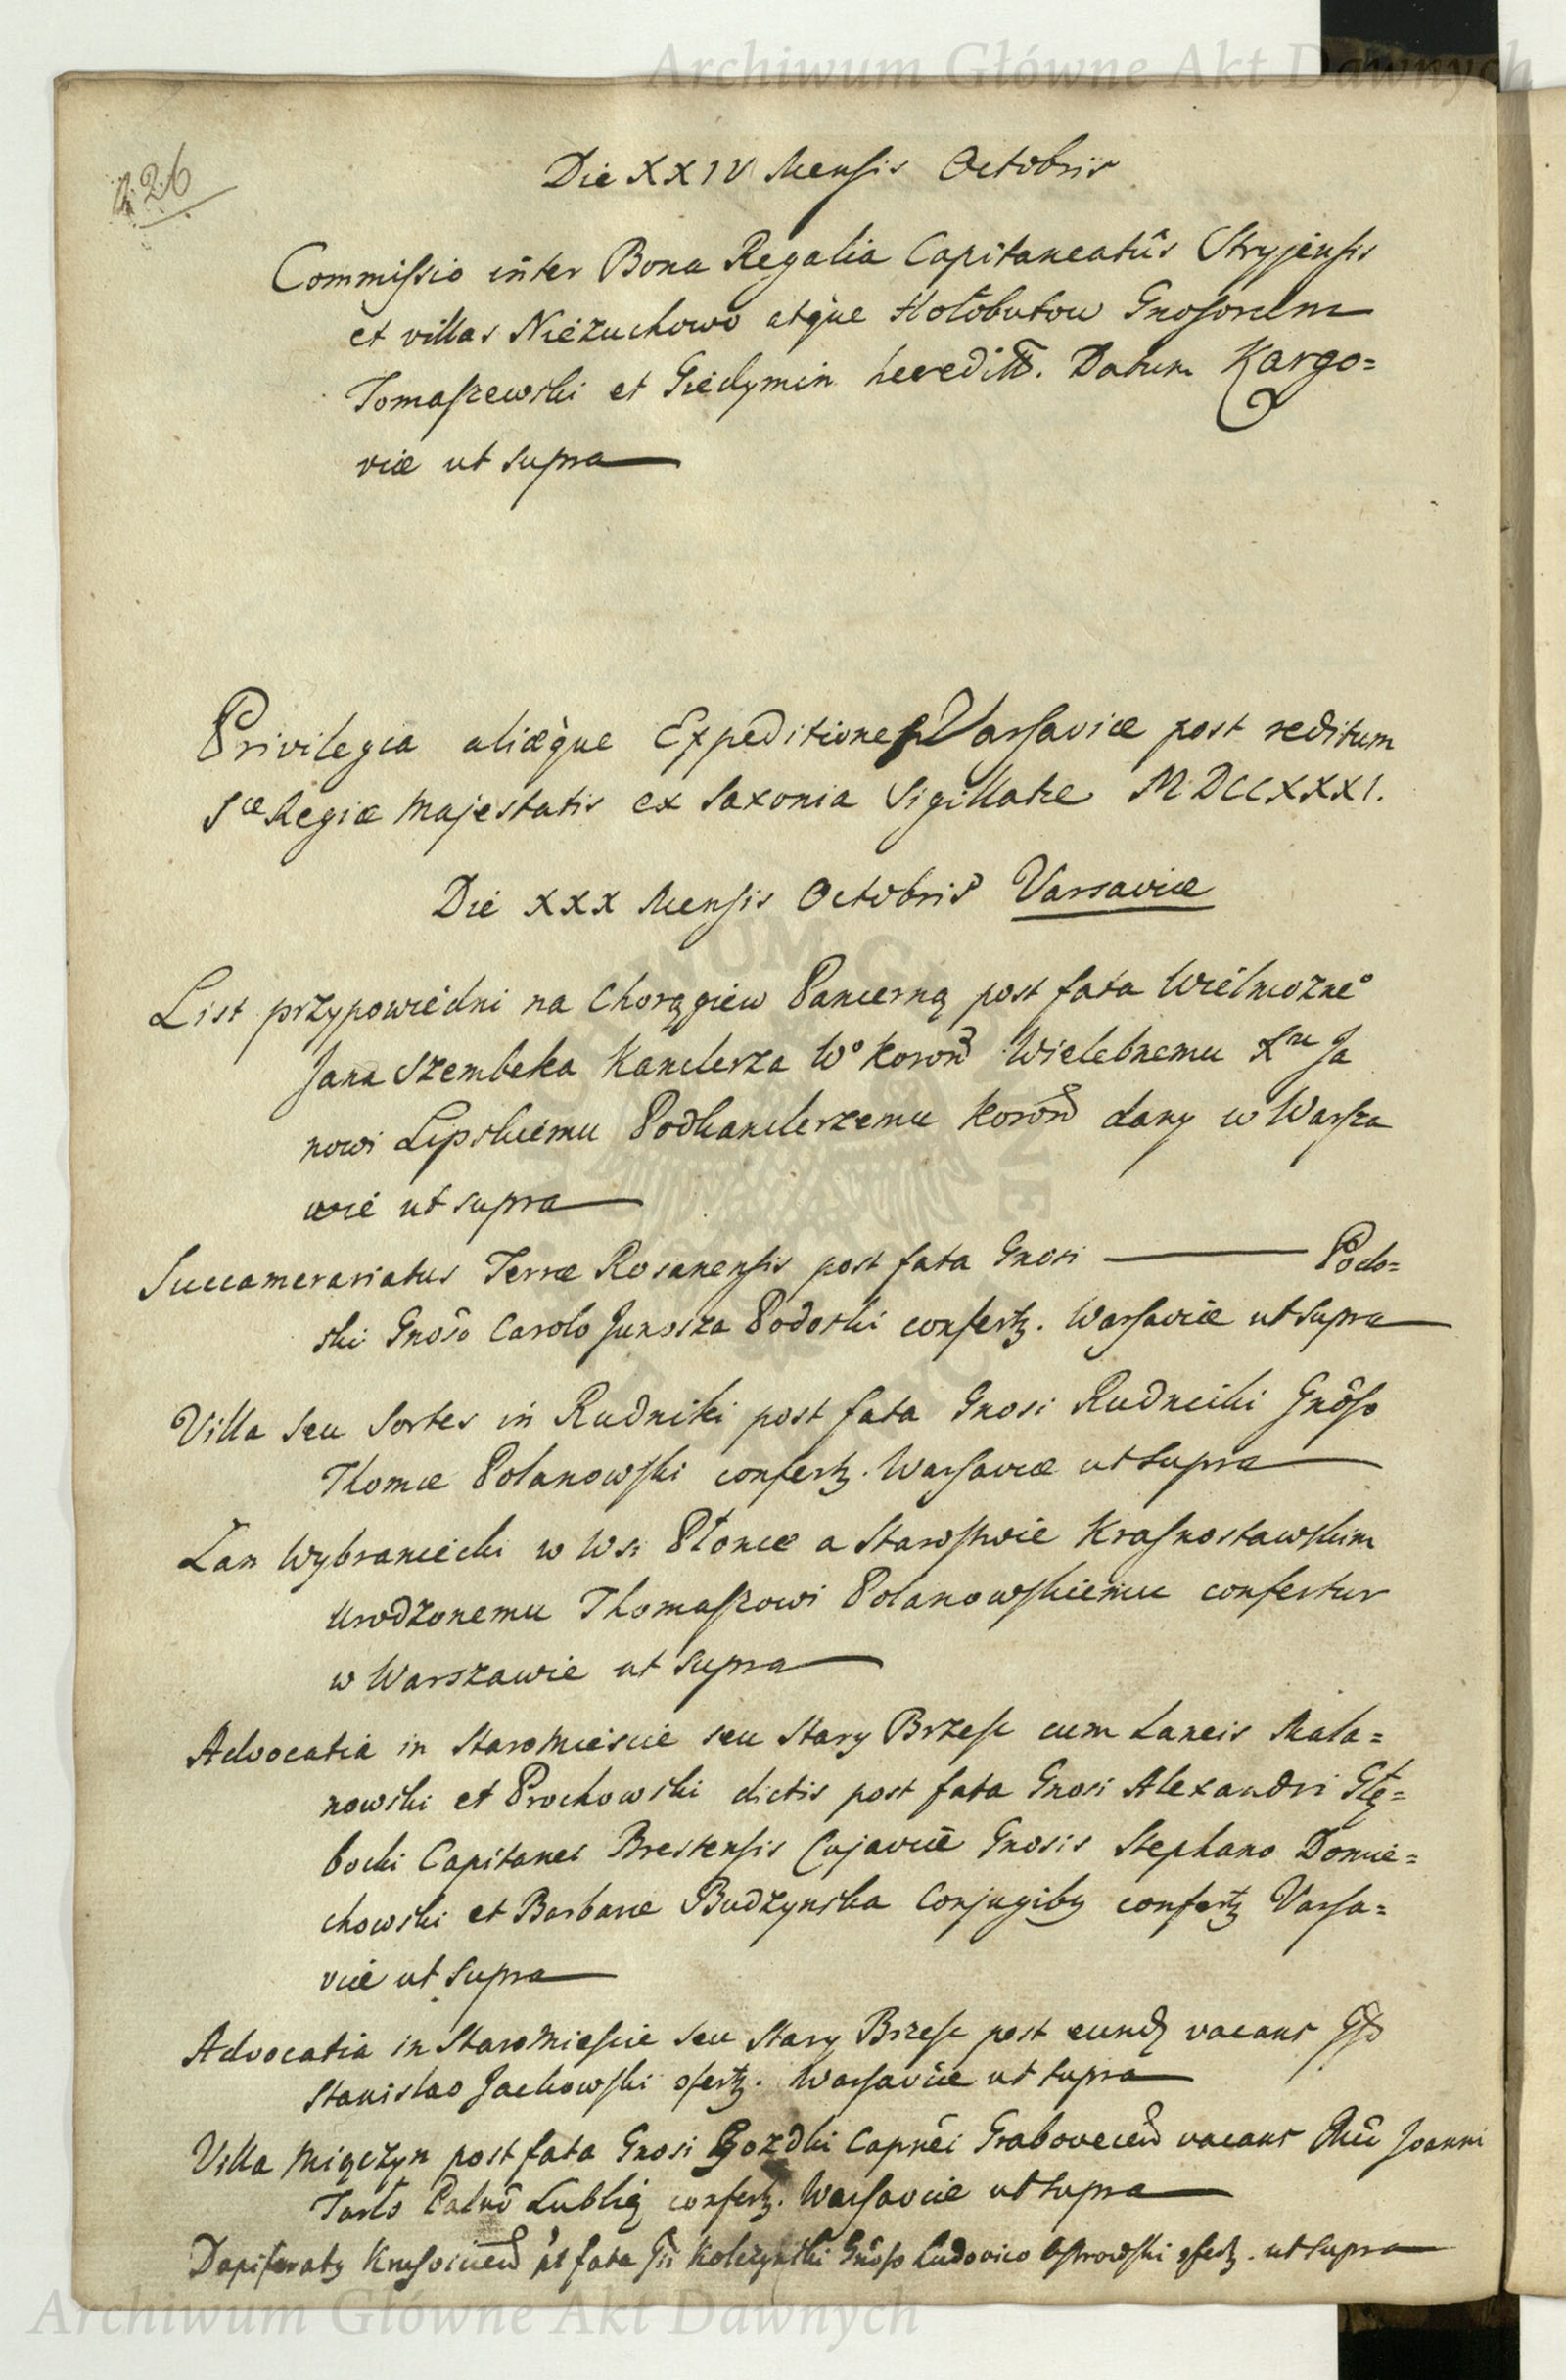 Archiwum Główne Akt Dawnych
426
Die XXIV Mensis Octobris
Commissio inter Bona Regalia Capitaneatûs Stryjensis
et villas Nieżuchowo atque Hołobutow Gnosorum
Tomaszewski et Giedymin heredit. Datum Kargo=
viæ ut supra
Privilegia aliæque Expeditiones Varsaviæ post reditum
Sæ Regiæ Majestatis ex Saxonia Sigillatæ MDCCXXXI.
Die XXX Mensis Octobris Varsaviæ
List przypowiedni na Chorągiew Pancerną post fata Wielmożneo
Jana Szembeka Kanclerza Wo Koron Wielebnemu Xdzu Ja
nowi Lipskiemu Podkanclerzemu Koron dany w Warsza
wie ut supra
Succamerariatus Terræ Rosanensis post fata Gnosi Podo=
ski Gnoso Carolo Junosza Podoski confertz. Warsaviæ ut supra
Villa seu Sortes in Rudniki post fata Gnosi Rudnicki Gnoso
Thomæ Polanowski confertz. Warsaviæ ut supra
Łan Wybraniecki w Wsi Płonce a Starostwie Krasnostawskim
Urodzonemu Thomaszowi Polanowskiemu confertur
w Warszawie ut supra
Advocatia in Staromieście seu Stary Brześć cum Laneis Mala=
nowski et Prochowski dictis post fata Gnosi Alexandri Głę=
bocki Capitanei Brestensis Cujaviæ Gnosis Stephano Domie=
chowski et Barbaræ Budzynska Conjugibz confertz Varsa=
viæ ut supra
Advocatia in Staromieście seu Stary Brześć post eund vacans Gso
Stanislao Jackowski ofertz. Warsaviæ ut supra
Villa Miączyn post fata Gnosi Gozdzki Capnei Graboveceñ vacans Mco Joanni
Tarło Palno Lublin confertz. Warsaviæ ut supra
Dapiferatz Krusvicen pt fata Gsi Kolczynski Gnoso Ludovico Ostrowski ofertz. ut supra
Archiwum Główne Akt Dawnych